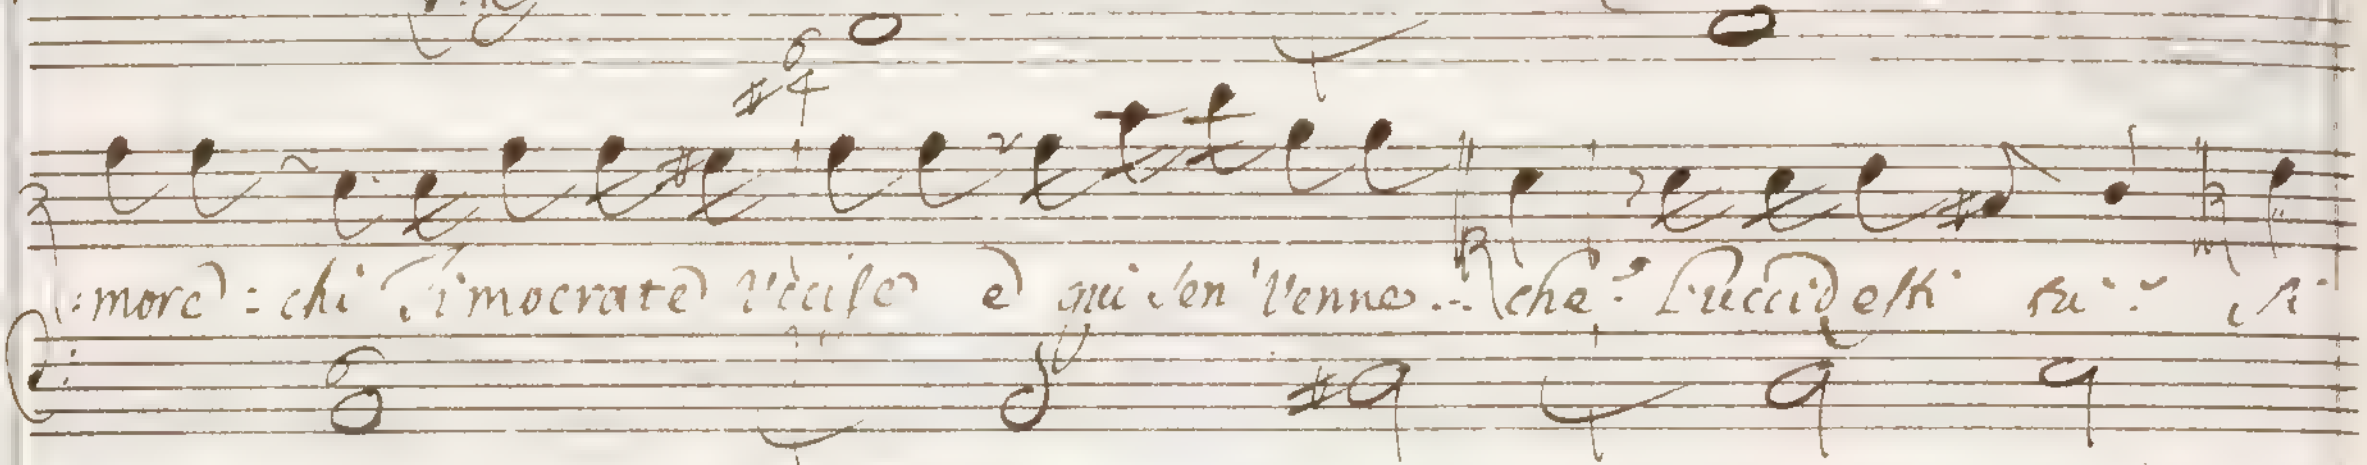 more : chi Timocrate uccise e qui sen venne .. che? L'uccidesti tu? si